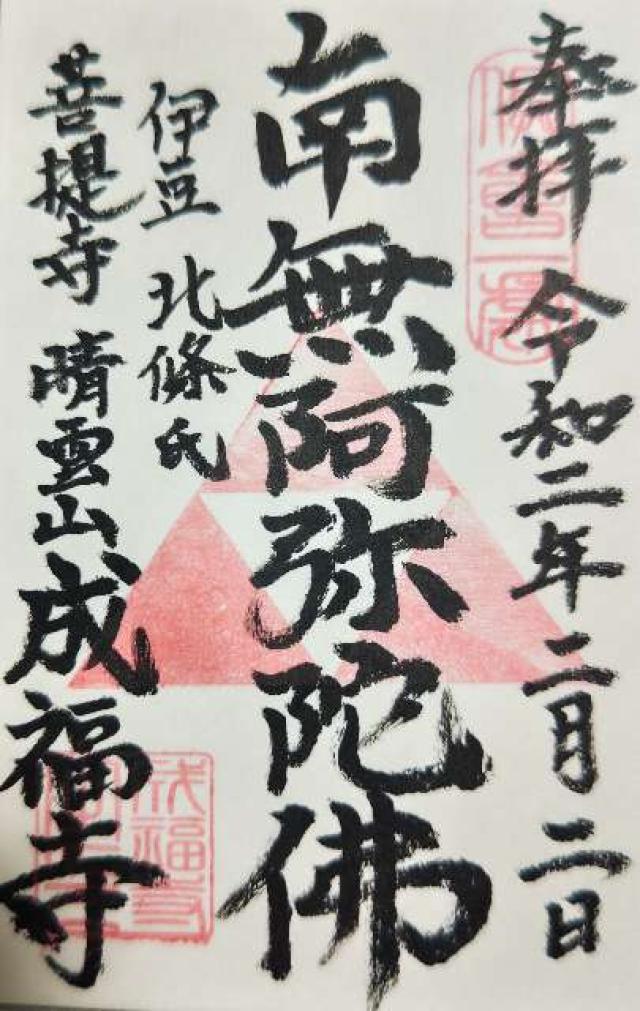 奉拝 令和二年二月二日
南無阿弥陀佛
伊豆 北條氏
菩提寺 晴雲山成福寺